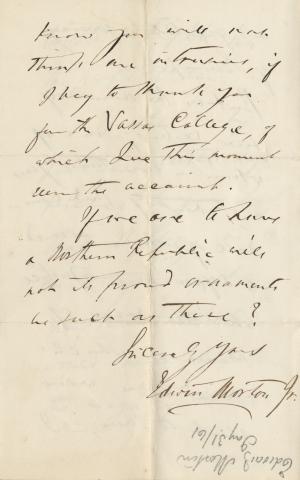 know you will not
think me intrusive, if
I beg to thank you
for the Vassar College, of
which I've this moment
seen the account.
If we are to have
a Northern Republic will
not its proud ornaments
be such as these?
Sincerely Yours
Edwin Morton Jr.
Edwin Morton
Jany 31/61